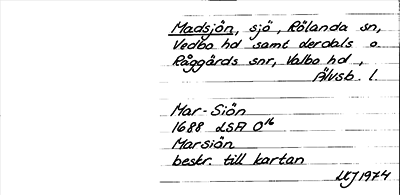 Madsjön, sjö, Rölanda sn,
Vedbo hd samt Ödeborgs o.
Råggärds snr, Valbo hd,
Älvsb. l.
Mar-Siön
1688 LSA O16
Marsiön
beskr. till kartan
1974